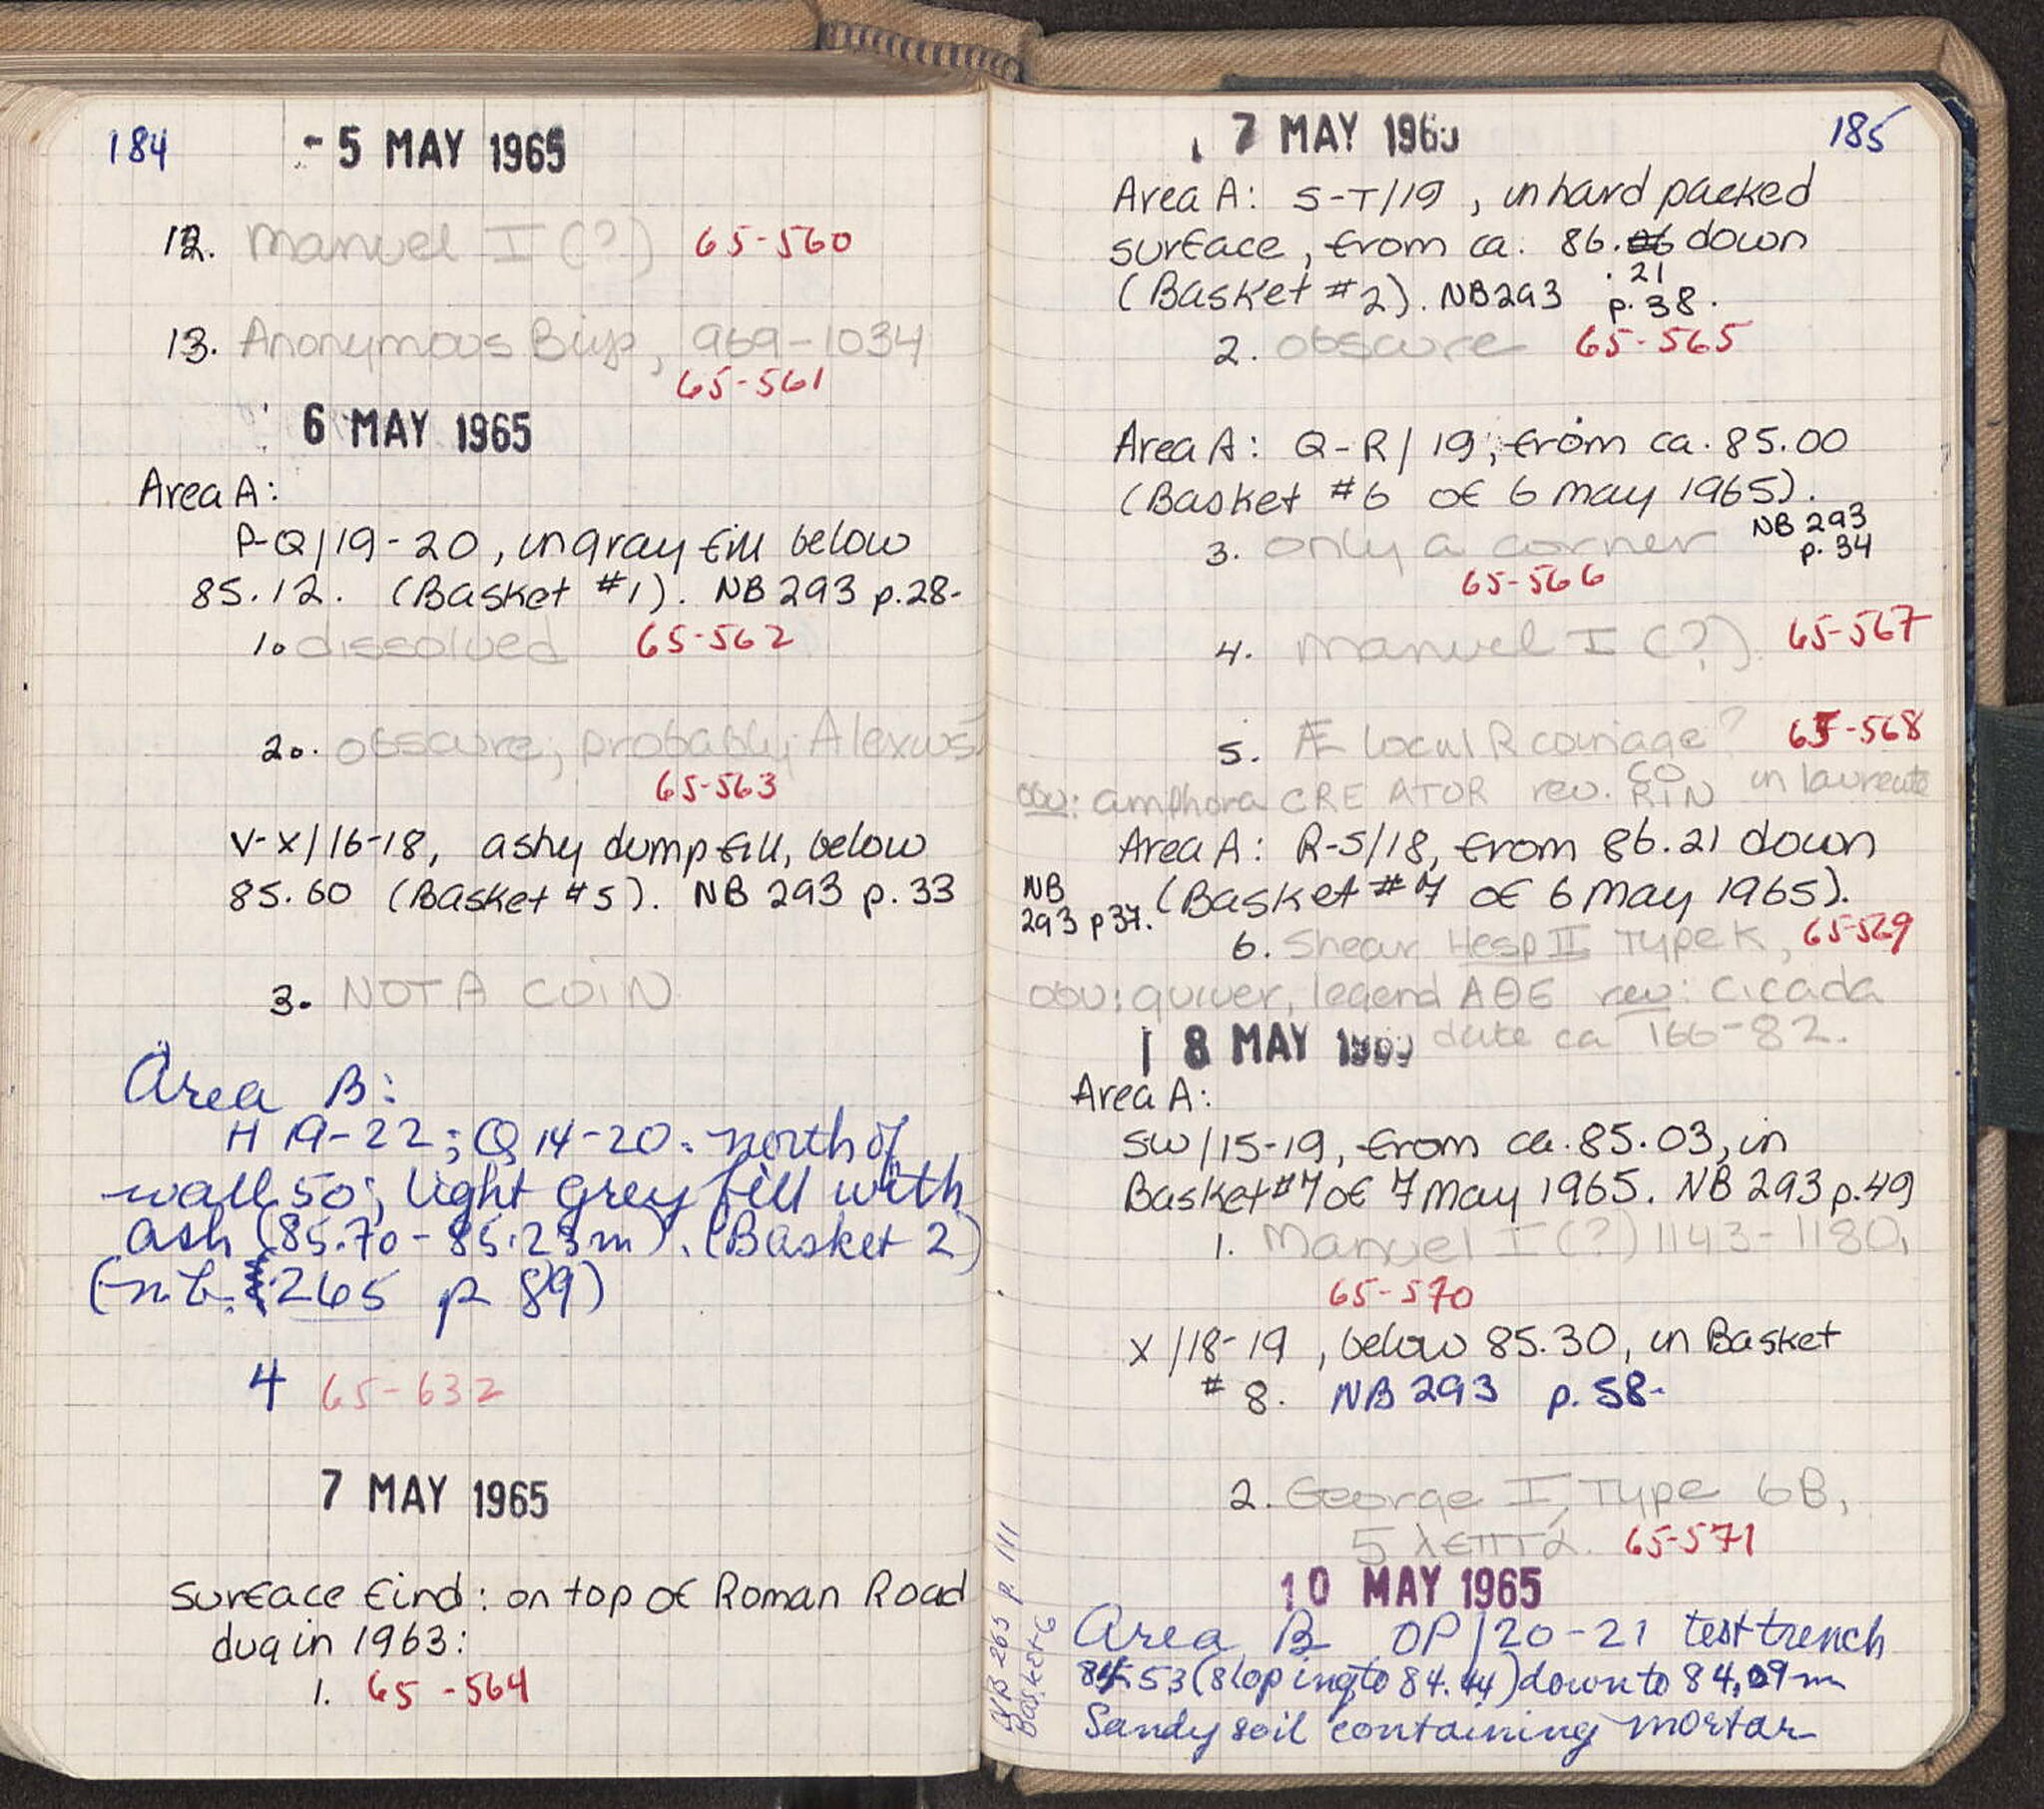 184
- 5 MAY 1965
12. Manuel I (?) 65-560
13. Anonymous Byz, 969-1034
65-561
6 MAY 1965
Area A:
P-Q/19-20, in gray fill below
85.12. (Basket #1). NB 293 p.28.
1. dissolved 65-562
2. obscure, probably Alexius
65-563
V-X/16-18, ashy dump fill, below
85.60 (Basket #5). NB 293 p. 33
3. NOT A COIN
Area B:
H 19-22; Q 14-20: north of
wall 50; light grey fill with
ash (85.70-85.23m). (Basket 2)
(n.b. 265 p 89)
4 65-632
7 MAY 1965
Surface find: on top of Roman Road
dug in 1963:
1. 65-564
7 MAY 1965
185
Area A: S-T/19, in hard packed
surface, from ca. 86.06 down
.21
(Basket #2). NB293 p. 38.
2. obscure 65-565
Area A: Q-R/19, from ca. 85.00
(Basket #6 of 6 May 1965).
NB 293
p. 34
3. only a corner
65-566
4. Manuel I (?). 65-567
5. Æ local R coinage? 65-568
obv: amphora CREATOR rev. CO RIN in laureate
Area A: R-S/18, from 86.21 down
(Basket #7 of 6 May 1965).
NB
293 p37.
6. Shear Hesp II Type K, 65-569
obv: quiver, legend AΘE rev: cicada
date ca 166-82.
8 MAY 1965
Area A:
SW/15-19, from ca. 85.03, in
Basket #7 of 7 May 1965. NB 293 p.49
1. Manuel I (?) 1143-1180,
65-570
X/18-19, below 85.30, in Basket
# 8. NB 293 p. 58.
2. George I, Type 6B,
5 λεπτά. 65-571
10 MAY 1965
NB 265 p. 111
Basket 6
Area B OP/20-21 test trench
84.53 (sloping to 84.44) down to 84.09m
Sandy soil containing mortar